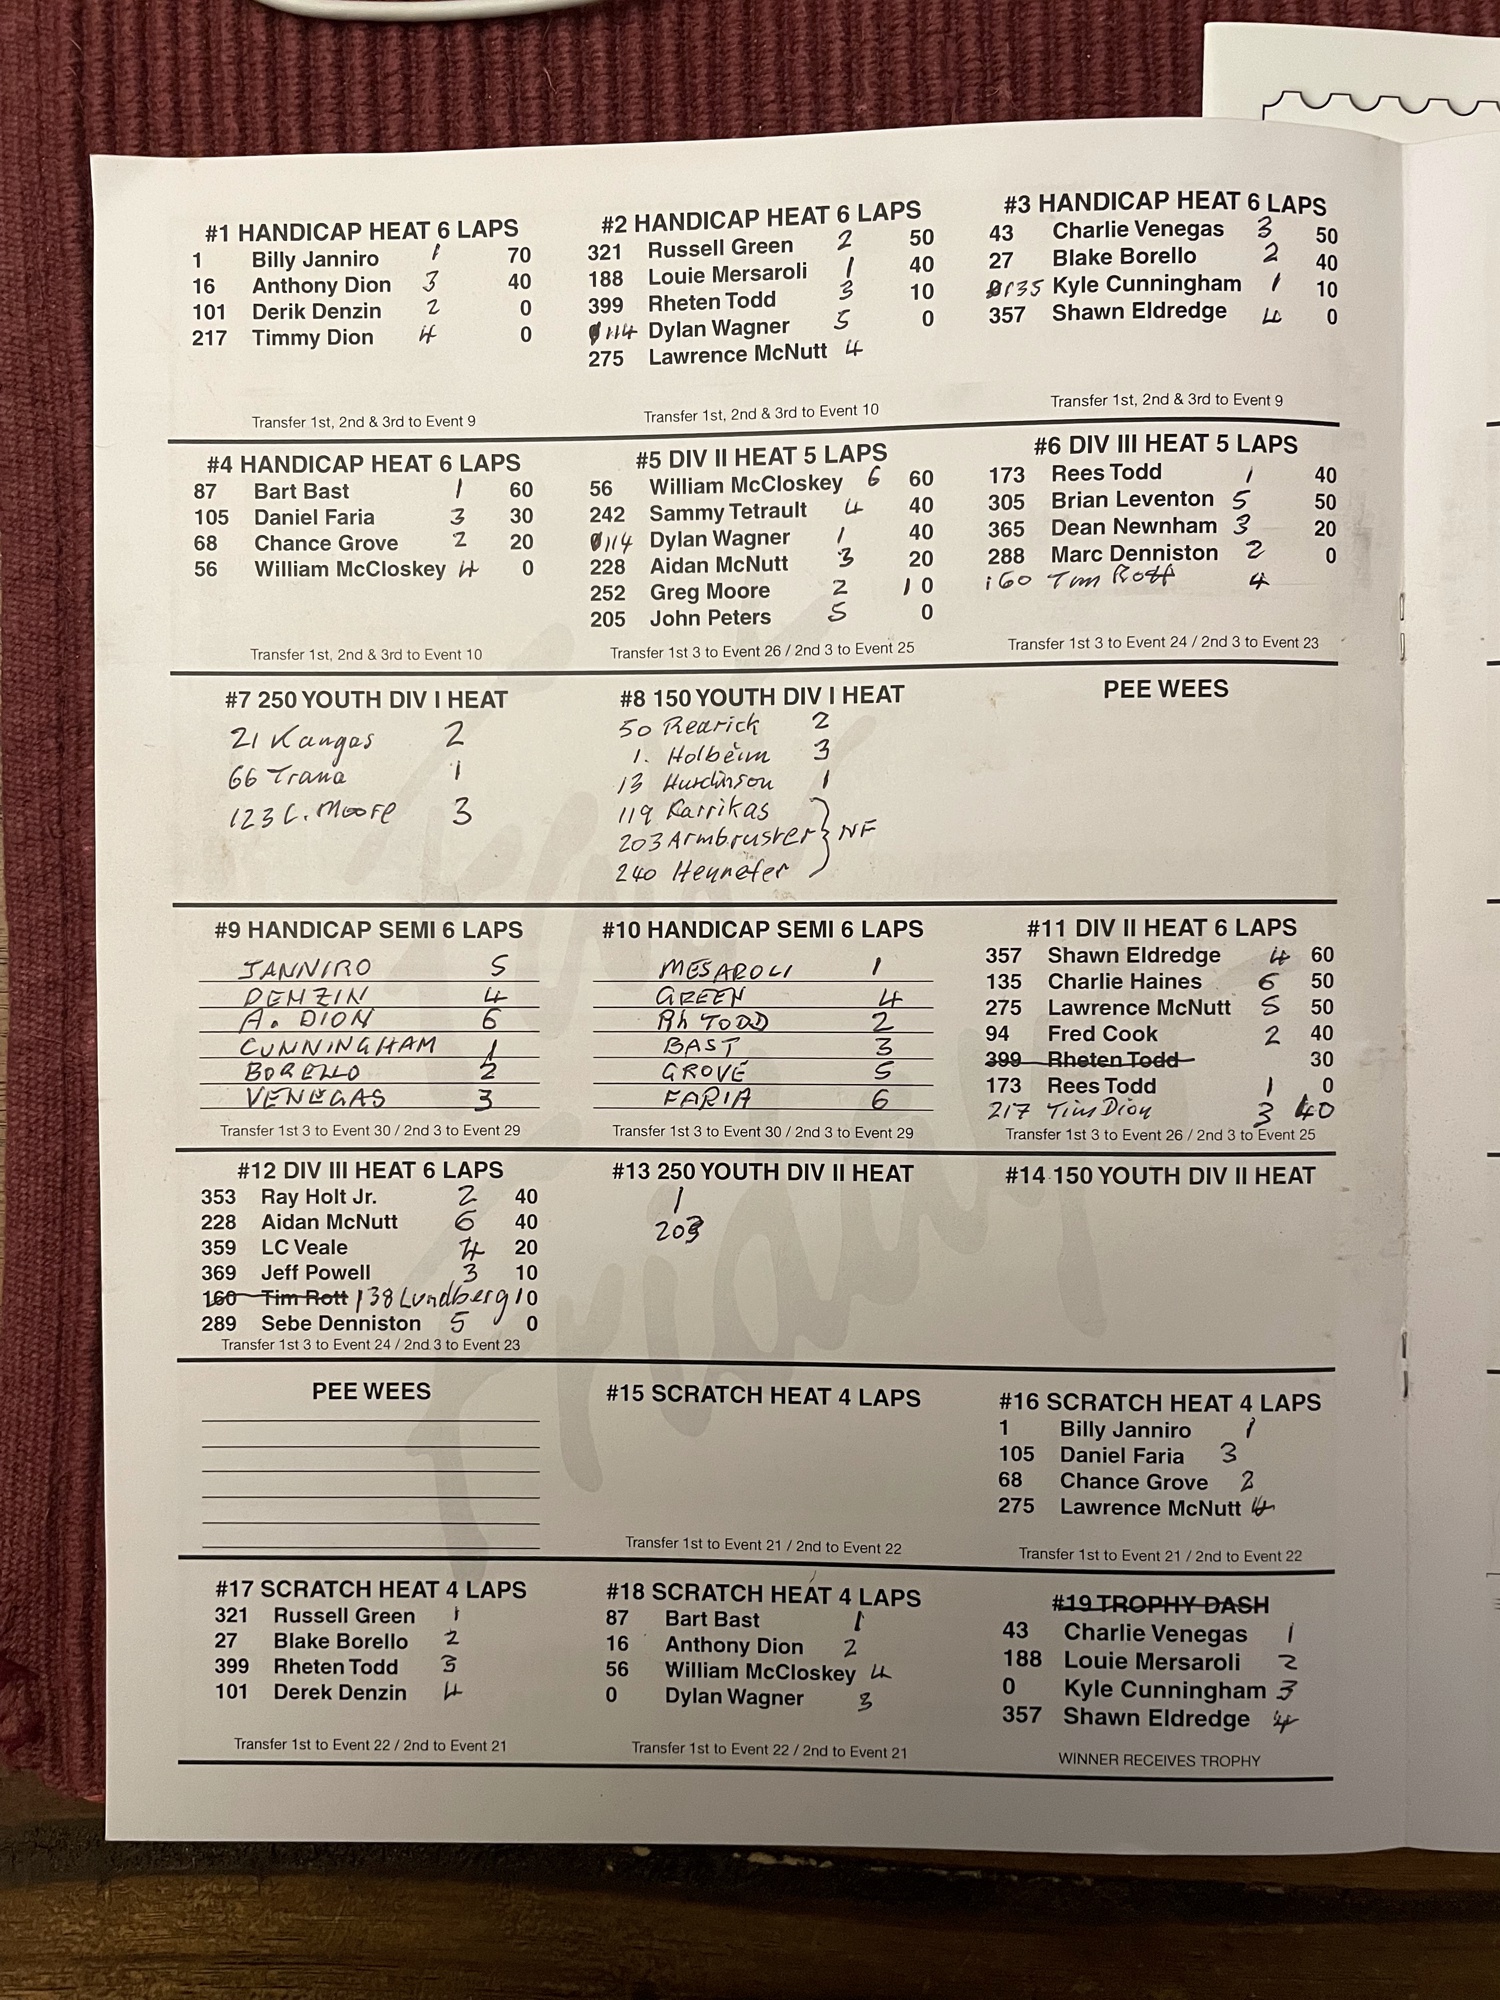 #1 HANDICAP HEAT 6 LAPS
1 Billy Janniro 1 70
16 Anthony Dion 3 40
101 Derik Denzin 2 0
217 Timmy Dion 4 0
Transfer 1st, 2nd & 3rd to Event 9
#2 HANDICAP HEAT 6 LAPS
321 Russell Green 2 50
188 Louie Mersaroli 1 40
399 Rheten Todd 3 10
0 114 Dylan Wagner 5 0
275 Lawrence McNutt 4
Transfer 1st, 2nd & 3rd to Event 10
#3 HANDICAP HEAT 6 LAPS
43 Charlie Venegas 3 50
27 Blake Borello 2 40
0 135 Kyle Cunningham 1 10
357 Shawn Eldredge 4 0
Transfer 1st, 2nd & 3rd to Event 9
#4 HANDICAP HEAT 6 LAPS
87 Bart Bast 1 60
105 Daniel Faria 3 30
68 Chance Grove 2 20
56 William McCloskey 4 0
Transfer 1st, 2nd & 3rd to Event 10
#5 DIV II HEAT 5 LAPS
56 William McCloskey 6 60
242 Sammy Tetrault 4 40
0 114 Dylan Wagner 1 40
228 Aidan McNutt 3 20
252 Greg Moore 2 10
205 John Peters 5 0
Transfer 1st 3 to Event 26 / 2nd 3 to Event 25
#6 DIV III HEAT 5 LAPS
173 Rees Todd 1 40
305 Brian Leventon 5 50
365 Dean Newnham 3 20
288 Marc Denniston 2 0
160 Tim Rott 4
Transfer 1st 3 to Event 24 / 2nd 3 to Event 23
#7 250 YOUTH DIV I HEAT
21 Kangas 2
66 Trana 1
123 C. Moore 3
#8 150 YOUTH DIV I HEAT
50 Rearick 2
1. Holbeim 3
13 Hutchinson 1
119 Karrikas
203 Armbruster } NF
240 Heynefer
PEE WEES
#9 HANDICAP SEMI 6 LAPS
JANNIRO 5
DENZIN 4
A. DION 6
CUNNINGHAM 1
BORELLO 2
VENEGAS 3
Transfer 1st 3 to Event 30 / 2nd 3 to Event 29
#10 HANDICAP SEMI 6 LAPS
MESAROLI 1
GREEN 4
Rh TODD 2
BAST 3
GROVE 5
FARIA 6
Transfer 1st 3 to Event 30 / 2nd 3 to Event 29
#11 DIV II HEAT 6 LAPS
357 Shawn Eldredge 4 60
135 Charlie Haines 6 50
275 Lawrence McNutt 5 50
94 Fred Cook 2 40
399 Rheten Todd 30
173 Rees Todd 1 0
217 Tim Dion 3 40
Transfer 1st 3 to Event 26 / 2nd 3 to Event 25
#12 DIV III HEAT 6 LAPS
353 Ray Holt Jr. 2 40
228 Aidan McNutt 6 40
359 LC Veale 4 20
369 Jeff Powell 3 10
160 Tim Rott 138 Lundberg 1 0
289 Sebe Denniston 5 0
Transfer 1st 3 to Event 24 / 2nd 3 to Event 23
#13 250 YOUTH DIV II HEAT
1
203
#14 150 YOUTH DIV II HEAT
PEE WEES
#15 SCRATCH HEAT 4 LAPS
Transfer 1st to Event 21 / 2nd to Event 22
#16 SCRATCH HEAT 4 LAPS
1 Billy Janniro 1
105 Daniel Faria 3
68 Chance Grove 2
275 Lawrence McNutt 4
Transfer 1st to Event 21 / 2nd to Event 22
#17 SCRATCH HEAT 4 LAPS
321 Russell Green 1
27 Blake Borello 2
399 Rheten Todd 3
101 Derek Denzin 4
Transfer 1st to Event 22 / 2nd to Event 21
#18 SCRATCH HEAT 4 LAPS
87 Bart Bast 1
16 Anthony Dion 2
56 William McCloskey 4
0 Dylan Wagner 3
Transfer 1st to Event 22 / 2nd to Event 21
#19 TROPHY DASH
43 Charlie Venegas 1
188 Louie Mersaroli 2
0 Kyle Cunningham 3
357 Shawn Eldredge 4
WINNER RECEIVES TROPHY